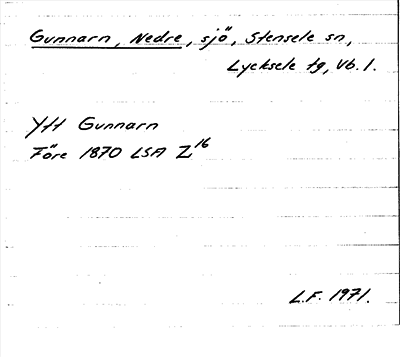 Gunnarn, Nedre, sjö, Stensele sn,
Lycksele tg, Vb. l.
Ytt Gunnarn
Före 1870 LSA Z16
L.F. 1971.